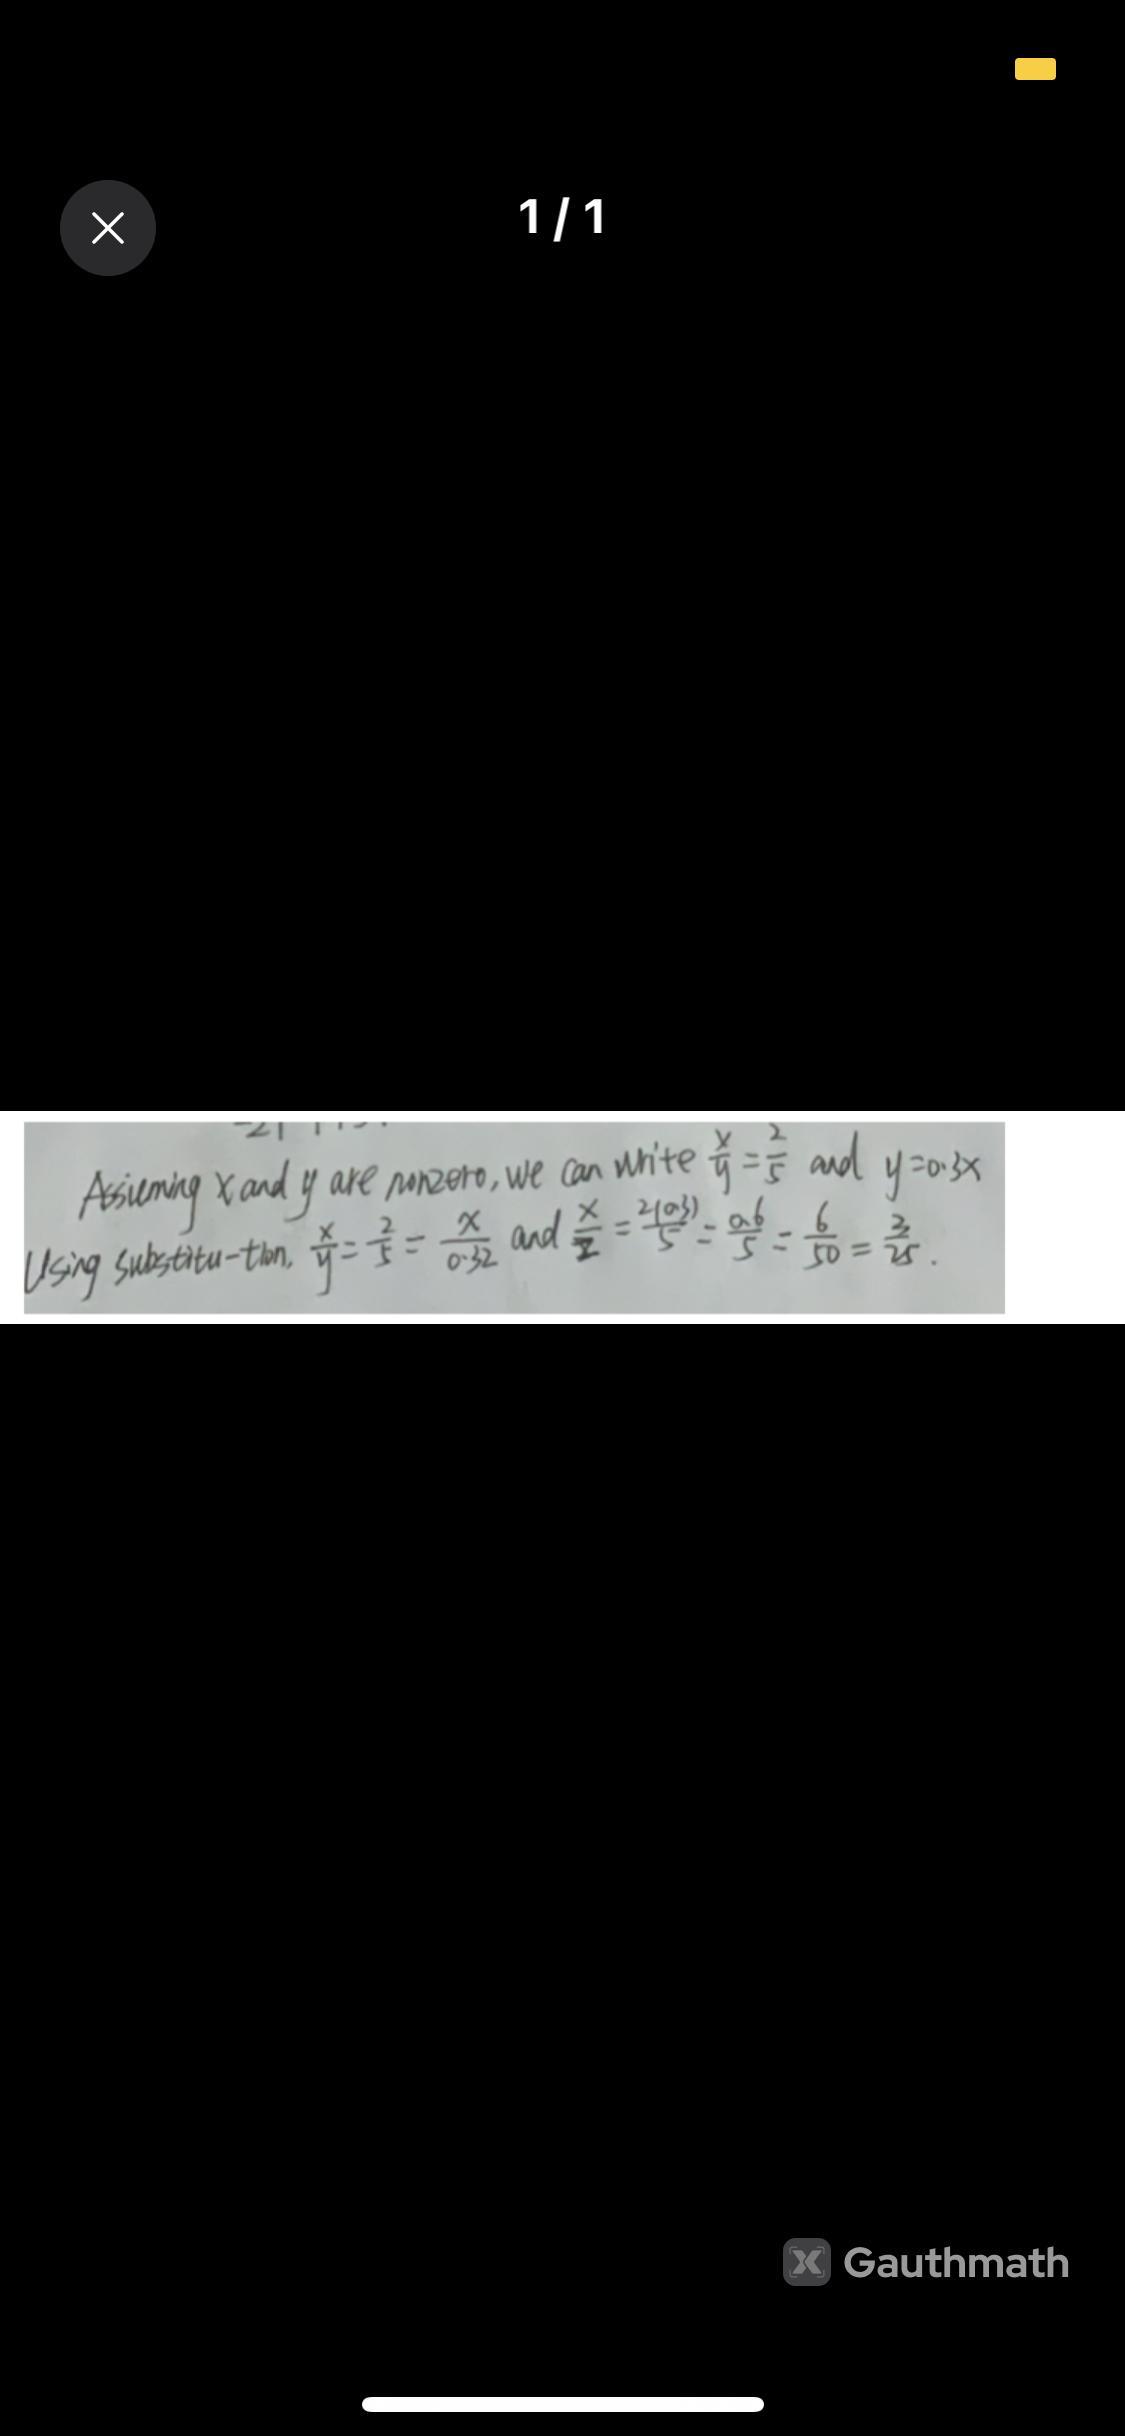 1 / 1
Assieming x and y are nonzero, we can write x/y = 2/5 and y = 0.3x
Using substitu-tlon, x/y = 2/5 = x/0.32 and x/z = 2(0.3)/5 = 0.6/5 = 6/50 = 3/25.
Gauthmath